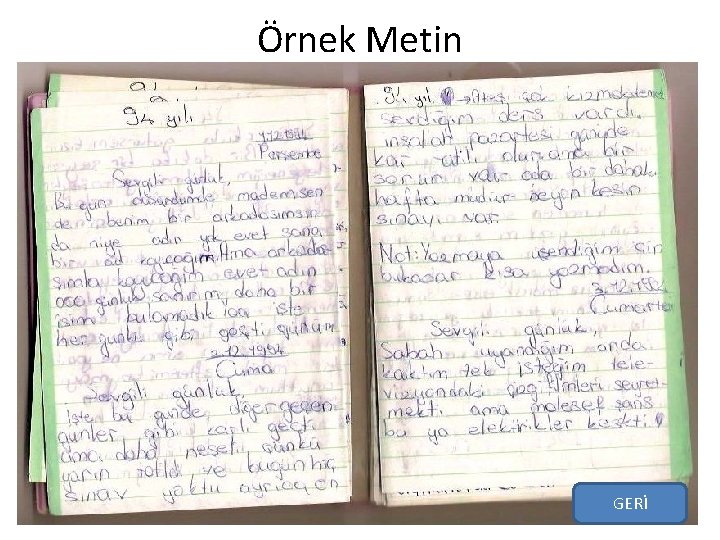 Örnek Metin
94 yılı
1.12.1994
Perşembe
Sevgili günlük,
Bu gün düşündümde mademsen
de benim bir arkadaşımsın
da niye adın yok evet sana
bir ad koyacağım Ama arkada-
şımla koyacağım evet adın
günlük sanırım daha bir
isim bulamadık işte
her günkü gibi geçti günüm
2.12.1994
Cuma
Sevgili günlük,
İşte bu günde, diğer geçen
günler gibi karlı geçti
ama daha neşeli çünkü
yarın tatil ve bugün hiç
sınav yoktu ayrıca en
94 yılı
sevdiğim ders vardı.
inşallah pazartesi günüde
kar tatili olur ama bir
sorun var oda bir dahaki
hafta müdür beyin kesin
sınavı var
Not: Yazmaya üşendiğim için
bukadar kısa yazmadım.
3.12.1994
Cumartesi
Sevgili günlük,
Sabah uyandığım anda
tek isteğim tele-
vizyondaki çizgi filmleri seyret-
mekti ama malesef şans
bu ya elektirikler kesikti.
GERİ